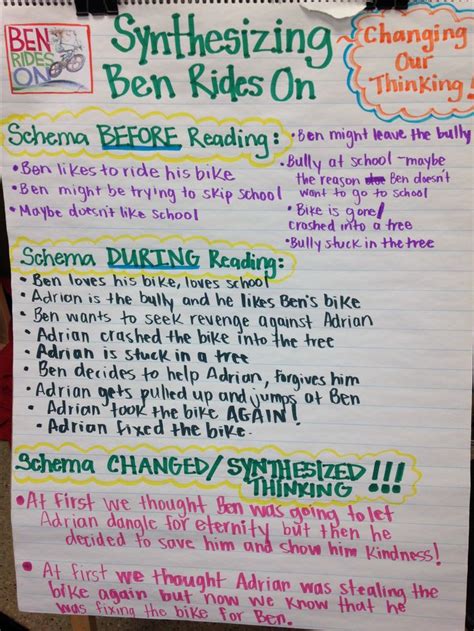 BEN
RIDES
ON
Synthesizing
Ben Rides On
Changing
Our
Thinking!
Schema BEFORE Reading:
• Ben likes to ride his bike
• Ben might be trying to skip school
• Maybe doesn't like school
• Ben might leave the bully
• Bully at school - maybe
the reason Ben doesn't
want to go to school
• Bike is gone/
crashed into a tree
• Bully stuck in the tree
Schema DURING Reading:
• Ben loves his bike, loves school
• Adrian is the bully and he likes Ben's bike
• Ben wants to seek revenge against Adrian
• Adrian crashed the bike into the tree
• Adrian is stuck in a tree
• Ben decides to help Adrian, forgives him
• Adrian gets pulled up and jumps at Ben
• Adrian took the bike AGAIN!
• Adrian fixed the bike.
Schema CHANGED/SYNTHESIZED !!!
THINKING
• At first we thought Ben was going to let
Adrian dangle for eternity but then he
decided to save him and show him kindness!
• At first we thought Adrian was stealing the
bike again but now we know that he
was fixing the bike for Ben.